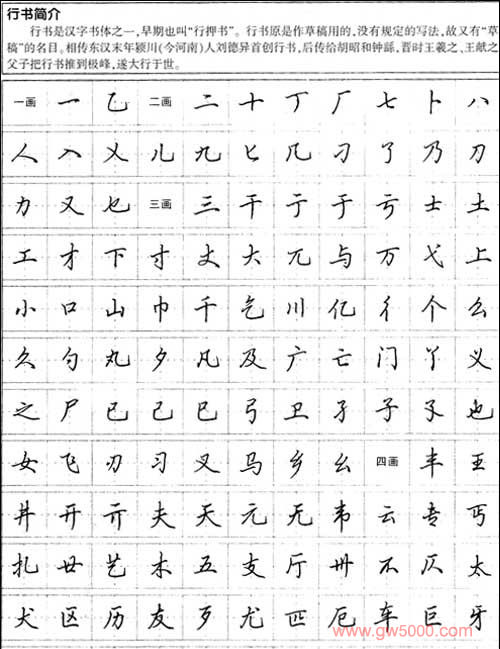 行书简介
行书是汉字书体之一,早期也叫“行押书”。行书原是作草稿用的,没有规定的写法,故又有“草
稿”的名目。相传东汉末年颍川(今河南)人刘德昇首创行书,后传给胡昭和钟繇,晋时王羲之、王献之
父子把行书推到极峰,遂大行于世。
一画 一 乙 二画 二 十 丁 厂 七 卜 八
人 入 乂 儿 九 匕 几 刁 了 乃 刀
力 又 乜 三画 三 干 亍 于 亏 士 土
工 才 下 寸 丈 大 兀 与 万 弋 上
小 口 山 巾 千 乞 川 亿 彳 个 么
久 勺 丸 夕 凡 及 广 亡 门 丫 义
之 尸 已 己 巳 弓 卫 孑 子 孓 也
女 飞 刃 习 叉 马 乡 幺 四画 丰 王
井 开 亓 夫 天 元 无 韦 云 专 丐
扎 廿 艺 木 五 支 厅 卅 不 仄 太
犬 区 历 友 歹 尤 匹 厄 车 巨 牙
www.gw5000.com